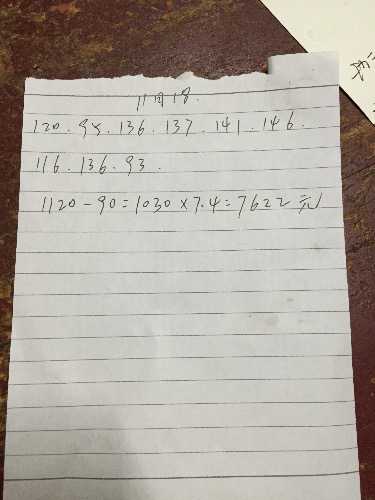 11月18.
120.95.136.137.141.146.
116.136.93.
1120-90=1030×7.4=7622元